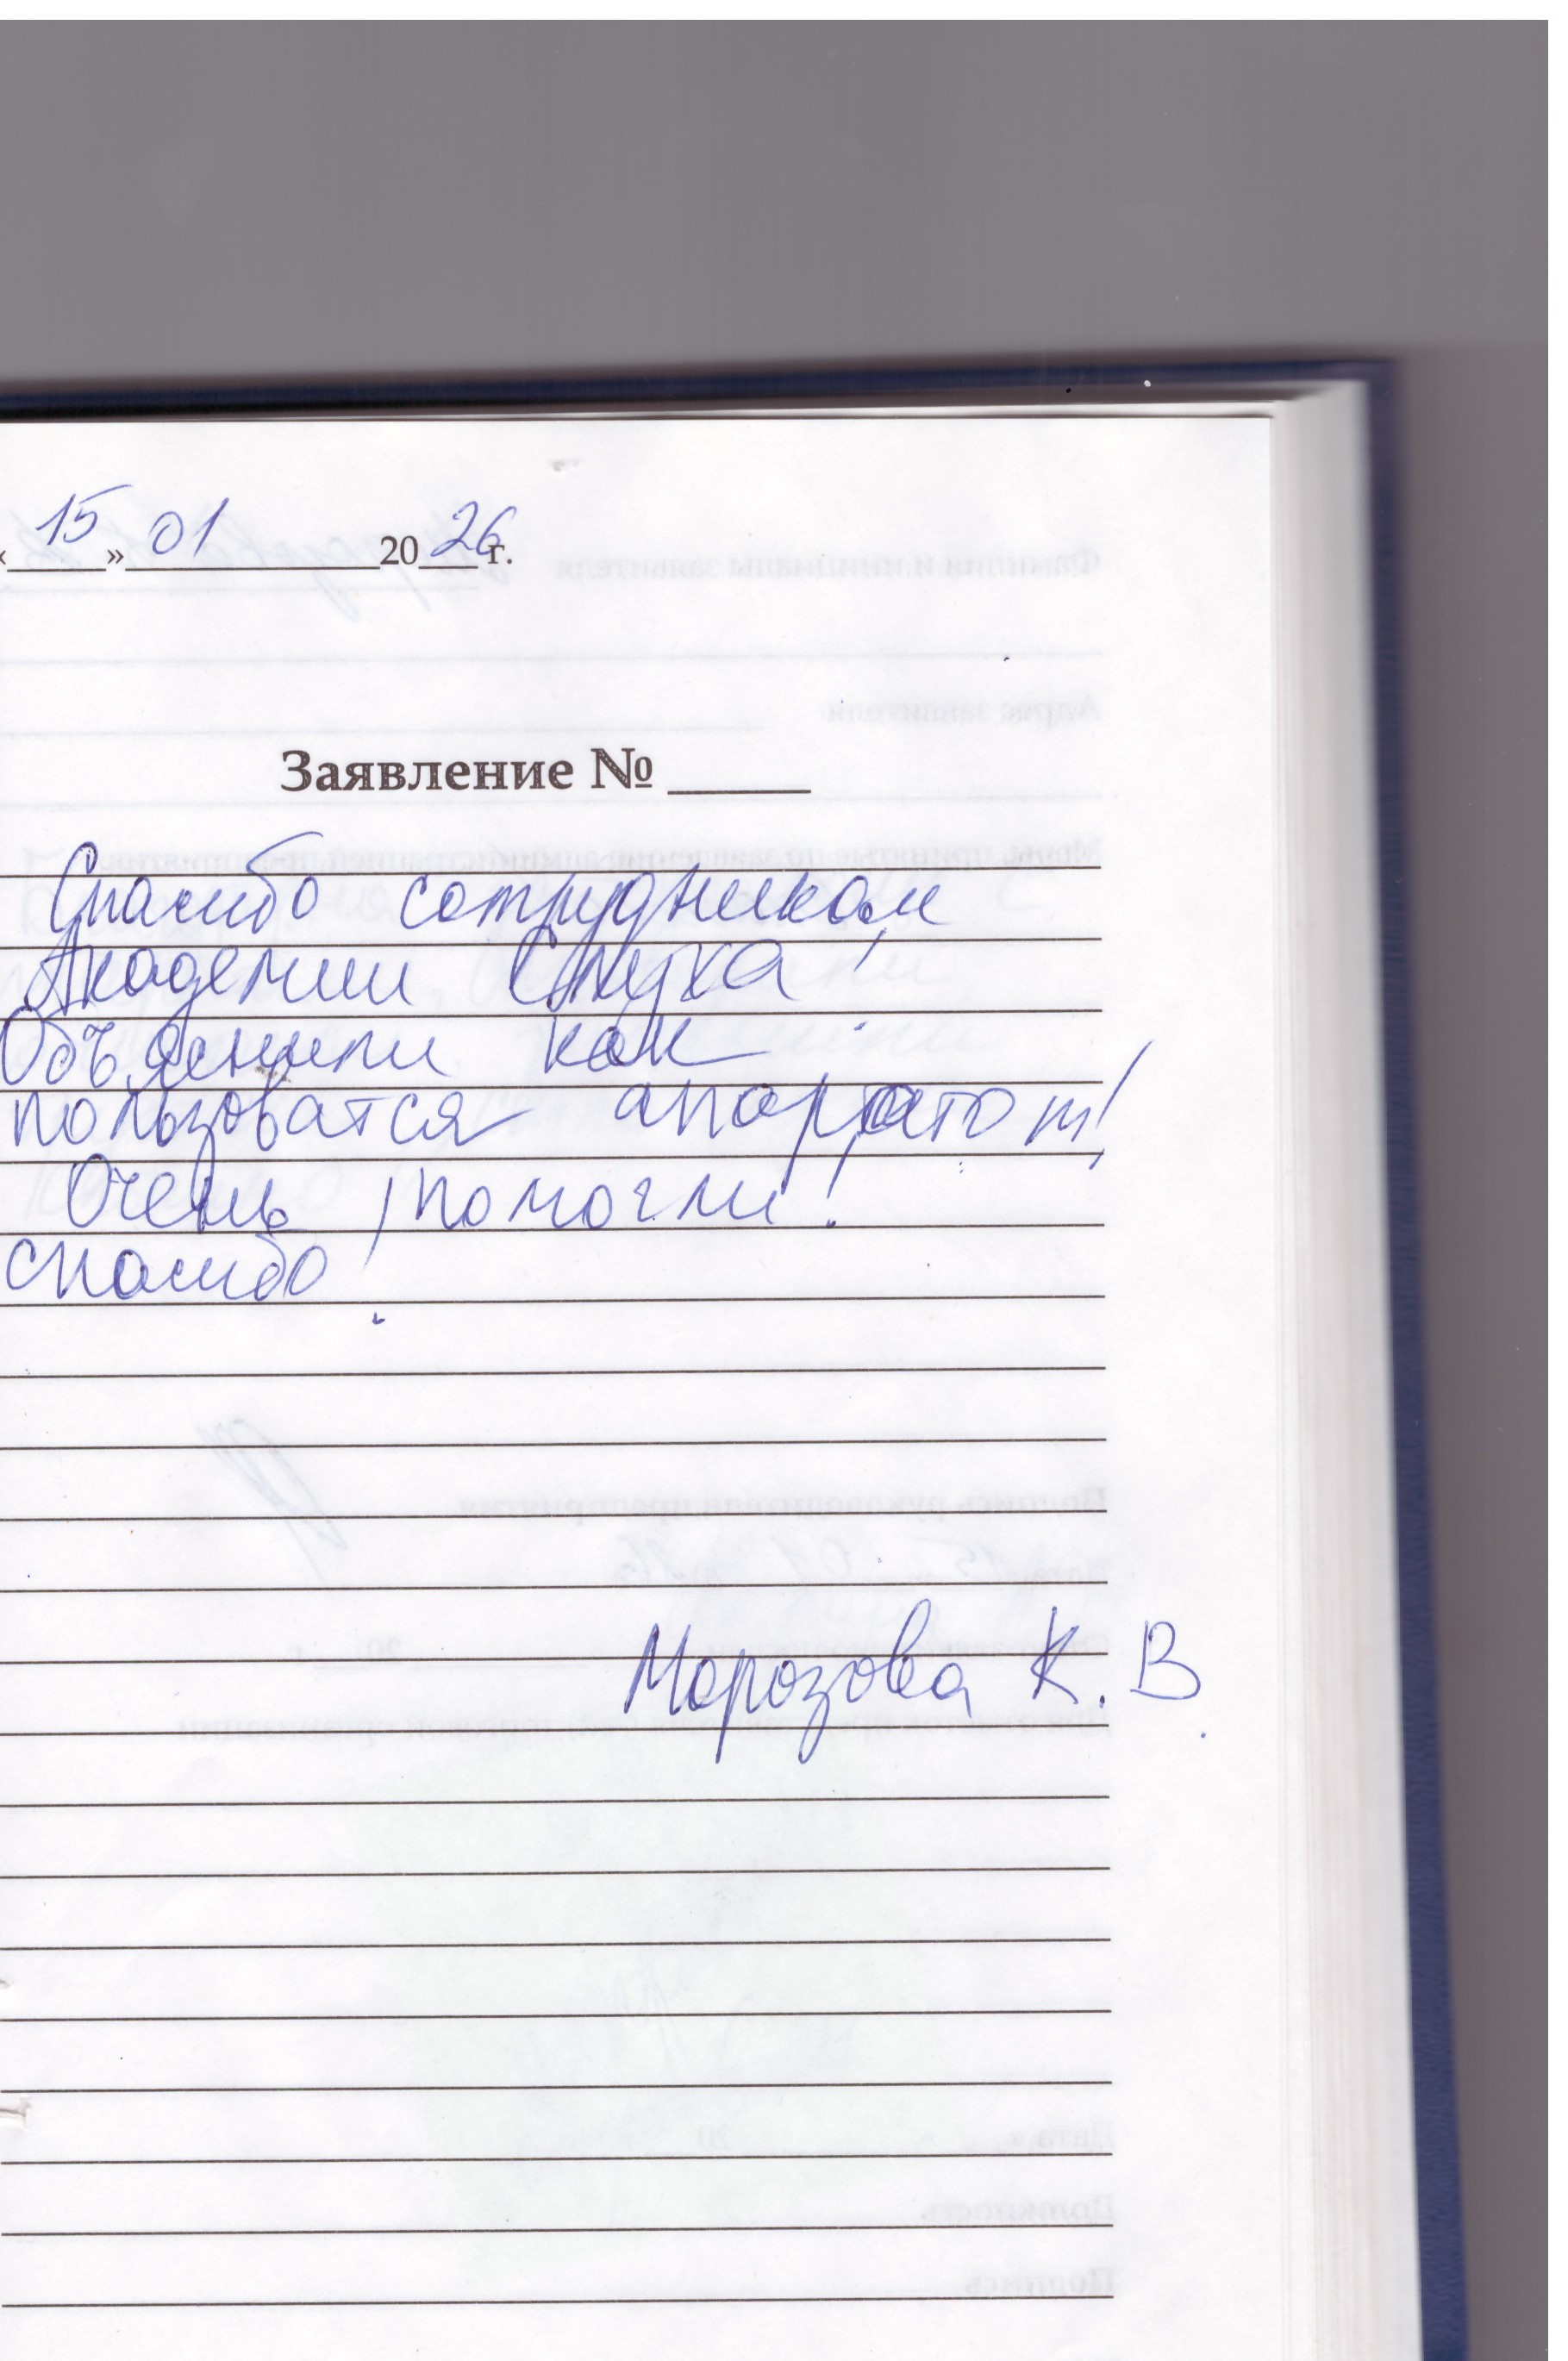 «15» 01 2026 г.
Заявление № _____
Спасибо сотрудникам
Академии Слуха!
Объяснили как
пользоватся апаратом!
Очень помогли!
спасибо!
Морозова К. В.